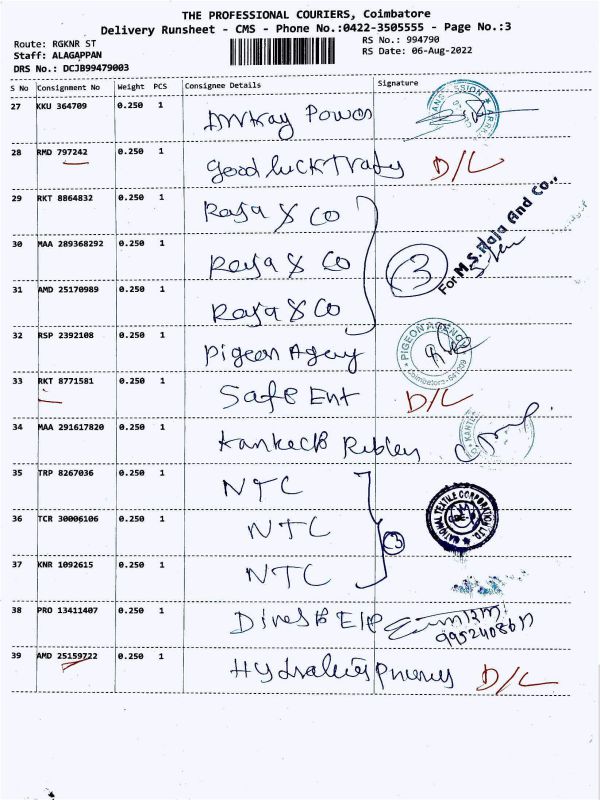 THE PROFESSIONAL COURIERS, Coimbatore
Delivery Runsheet - CMS - Phone No.:0422-3505555 - Page No.:3
Route: RGKNR ST
RS No.: 994790
Staff: ALAGAPPAN
RS Date: 06-Aug-2022
DRS No.: DCJB99479003
S No Consignment No Weight PCS Consignee Details Signature
27 KKU 364709 0.250 1 Power
28 RMD 797242 0.250 1 Good luck D/L
29 RKT 8864832 0.250 1 Raja & Co
30 MAA 289368292 0.250 1 Raja & Co 3 For M.S.Raja And Co.,
31 AMD 25170989 0.250 1 Raja & Co
32 RSP 2392108 0.250 1 Pigeon Agency PIGEON AGENCY Coimbatore
33 RKT 8771581 0.250 1 Safe Ent D/L
34 MAA 291617820 0.250 1
35 TRP 8267036 0.250 1 NTC
36 TCR 30006106 0.250 1 NTC 3 NATIONAL TEXTILE CORPORATION LTD.
37 KNR 1092615 0.250 1 NTC
38 PRO 13411407 0.250 1
39 AMD 25159722 0.250 1 D/L